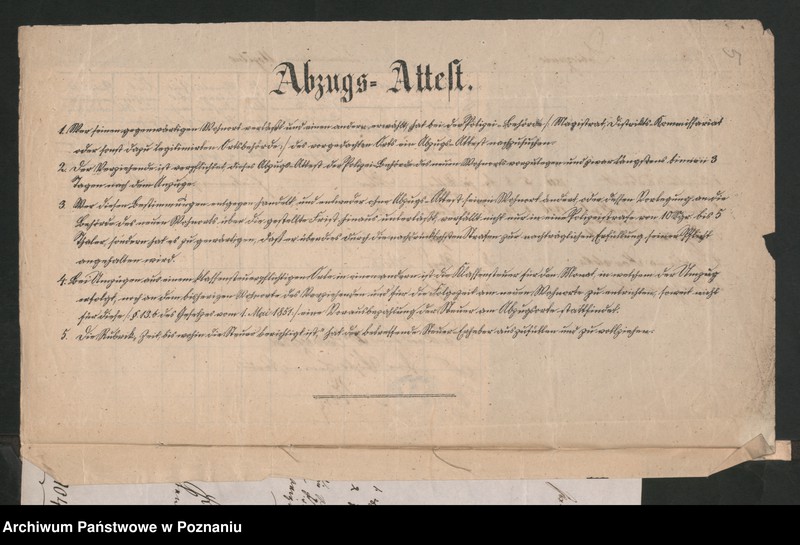 Abzugs-Attest.
1. Wer seinen gegenwärtigen Wohnort verläßt und einen andern erwählt, hat bei der Polizei-Behörde /: Magistrat, Distrikts-Kommissariat
oder sonst dazu legitimirten Ortsbehörde :/ des vorgedachten Orts ein Abzugs-Attest nachzusuchen.
2. Der Verziehende ist verpflichtet, dieses Abzugs-Attest der Polizei-Behörde des neuen Wohnorts vorzulegen und zwar längstens binnen 3
Tagen nach dem Anzuge.
3. Wer diesen Bestimmungen entgegen handelt und entweder ohne Abzugs-Attest seinen Wohnort ändert, oder dessen Vorlegung an die
Behörde des neuen Wohnorts über die gestellte Frist hinaus unterläßt, verfällt nicht nur in eine Polizeistrafe von 10 Sgr. bis 5
Thaler, sondern hat es zu gewärtigen, daß er überdies durch die nachdrücklichsten Strafen zur nachträglichen Erfüllung seiner Pflicht
angehalten wird.
4. Bei Umzügen aus einem klassensteuerpflichtigen Orte in einen andern ist die Klassensteuer für den Monat, in welchem der Umzug
erfolgt, noch an dem bisherigen Wohnorte des Verziehenden und für die Folgezeit am neuen Wohnorte zu entrichten, soweit nicht
für diese /: § 13.b des Gesetzes vom 1. Mai 1851 :/ eine Vorausbezahlung der Steuer am Abzugsorte stattfindet.
5. Die Rubrik, „Zeit bis wohin die Steuer berichtigt ist," hat der betreffende Steuer-Erheber auszufüllen und zu vollziehen.
Archiwum Państwowe w Poznaniu